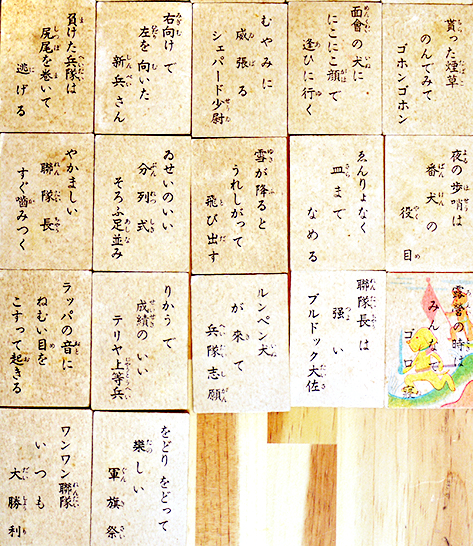 貰った煙草
のんでみて
ゴホンゴホン
面會の犬に
にこにこ顔で
逢ひに行く
むやみに
威張る
シェパード少尉
右向けで
左を向いた
新兵さん
負けた兵隊は
尻尾を巻いて
逃げる
夜の歩哨は
番犬の
役目
ゑんりょなく
皿まで
なめる
雪が降ると
うれしがって
飛び出す
ゐせいのいい
分列式
そろふ足並み
やかましい
聯隊長
すぐ噛みつく
露營の時は
みんなで
ゴロ寝
聯隊長は
強い
ブルドック大佐
ルンペン犬
が来て
兵隊志願
りかうで
成績のいい
テリヤ上等兵
ラッパの音に
ねむい目を
こすって起きる
をどりをどって
樂しい
軍旗祭
ワンワン聯隊
いつも
大勝利